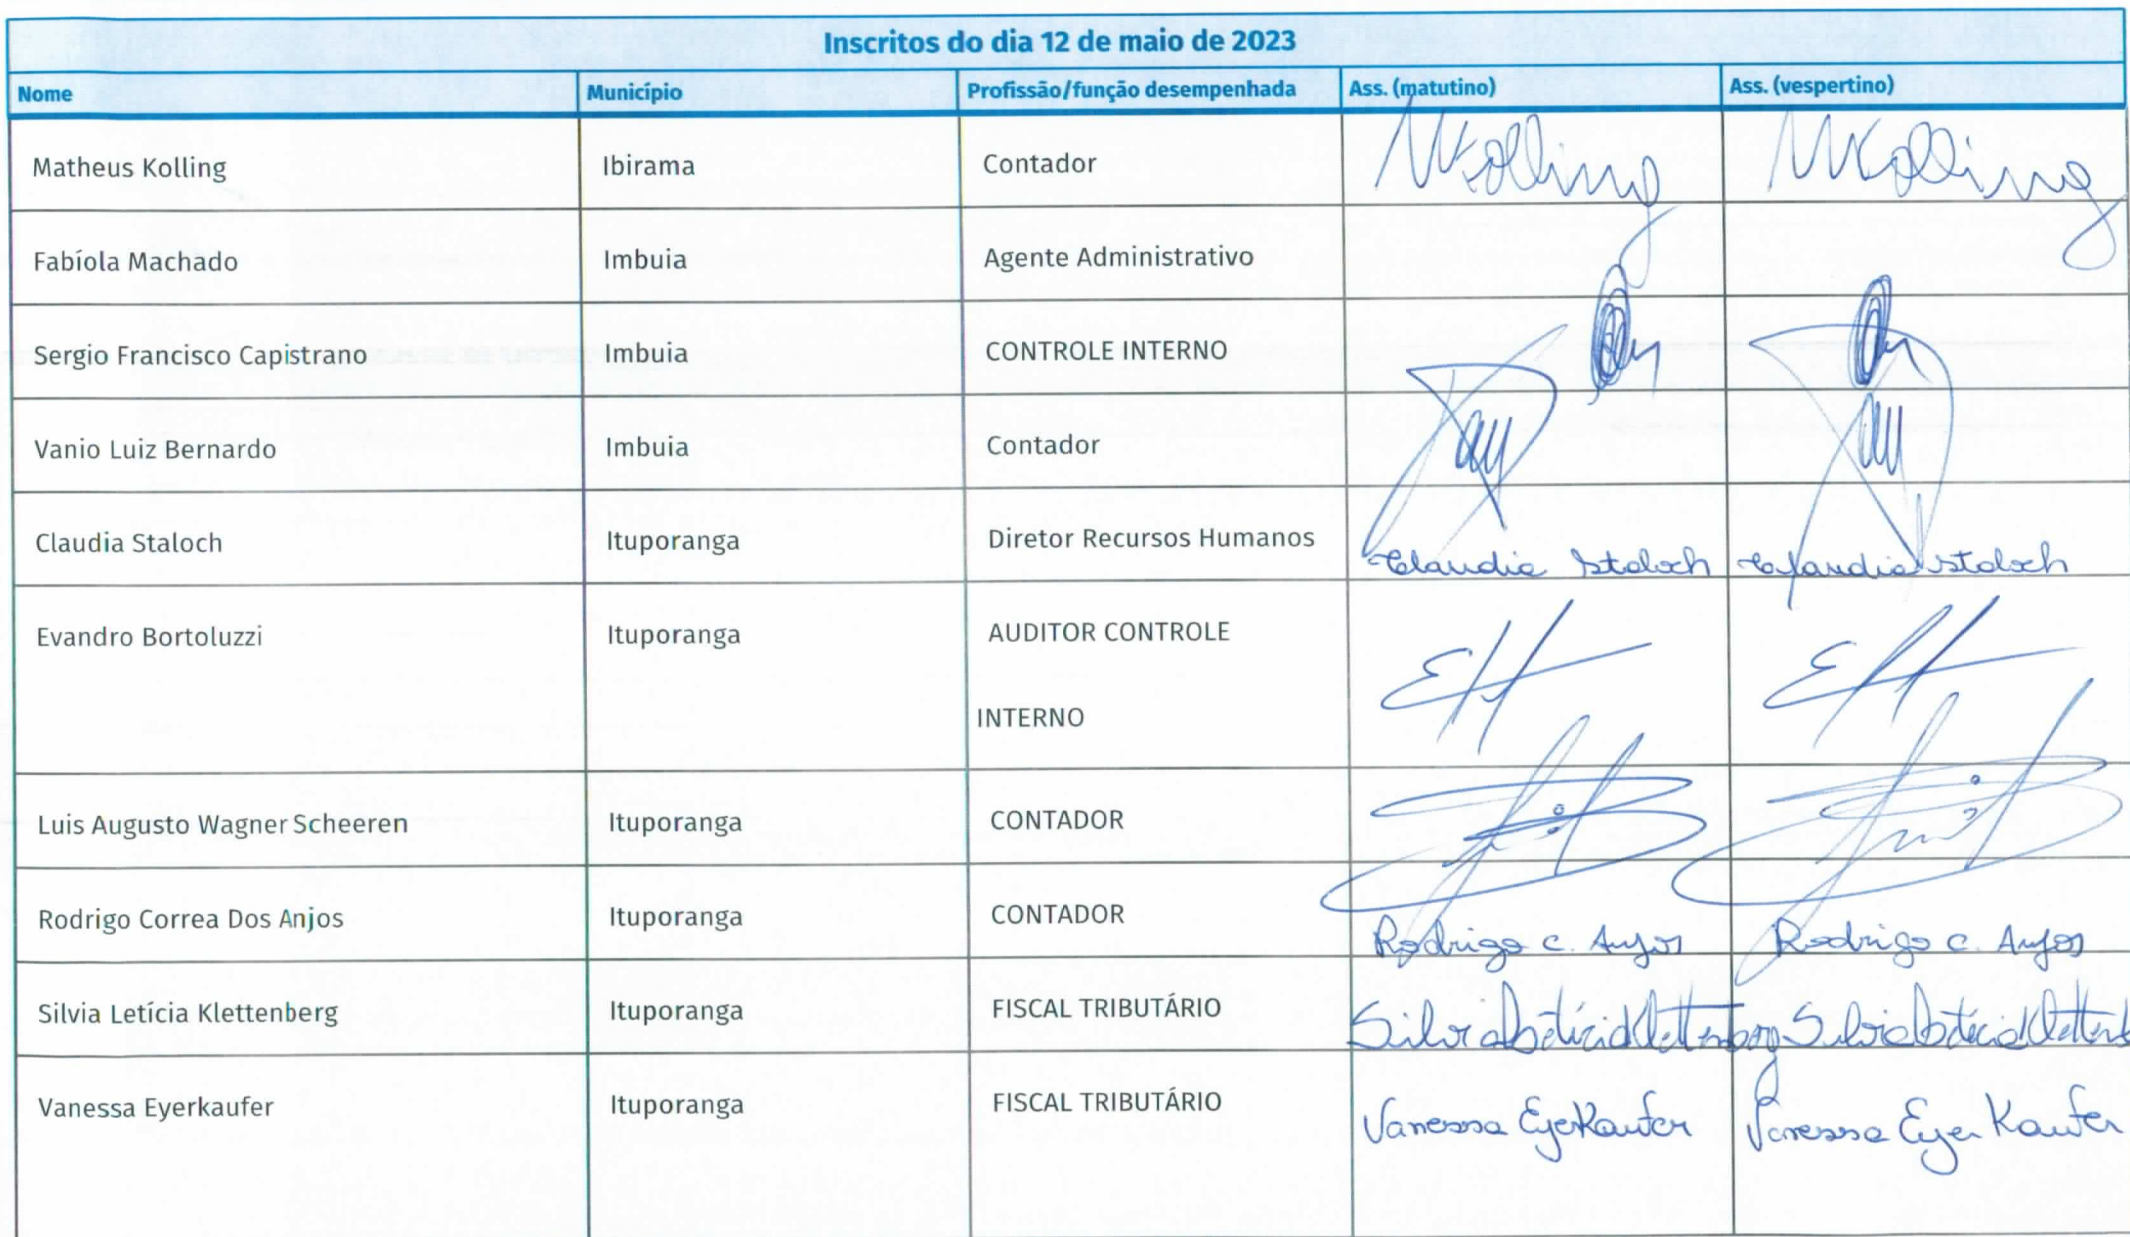 Inscritos do dia 12 de maio de 2023
Nome Município Profissão/função desempenhada Ass. (matutino) Ass. (vespertino)
Matheus Kolling Ibirama Contador MKolling MKolling
Fabíola Machado Imbuia Agente Administrativo
Sergio Francisco Capistrano Imbuia CONTROLE INTERNO
Vanio Luiz Bernardo Imbuia Contador
Claudia Staloch Ituporanga Diretor Recursos Humanos Claudia Staloch Claudia Staloch
Evandro Bortoluzzi Ituporanga AUDITOR CONTROLE
INTERNO
Luis Augusto Wagner Scheeren Ituporanga CONTADOR
Rodrigo Correa Dos Anjos Ituporanga CONTADOR Rodrigo C. Anjos Rodrigo C. Anjos
Silvia Letícia Klettenberg Ituporanga FISCAL TRIBUTÁRIO Silvia Letícia Klettenberg Silvia Letícia Klettenb
Vanessa Eyerkaufer Ituporanga FISCAL TRIBUTÁRIO Vanessa EyerKaufer Vanessa Eyer Kaufer